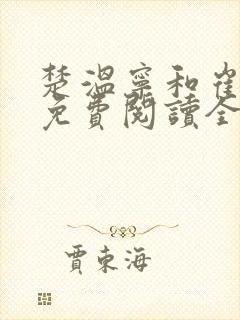 楚溫寧和崔
免費閱讀全
賈東海